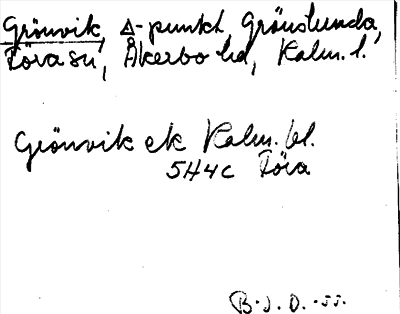 Grönvik, Δ-punkt, Grönslunda,
Föra sn, Åkerbo hd, Kalm. l.
Grönvik ek Kalm. bl.
5H4c Föra
B.J.O. -55.